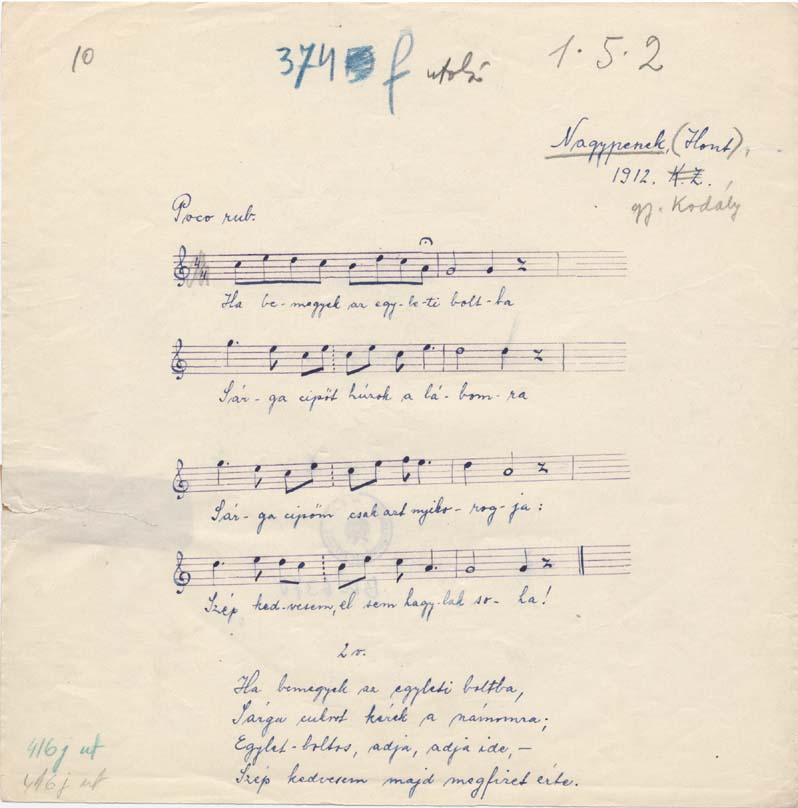 10
374 f utolsó
1·5·2
Nagypenek, (Hont),
1912. K. Z.
gy. Kodály
Poco rub.
Ha be-megyek az egy-le-ti bolt-ba
Sár-ga cipőt húzok a lá-bom-ra
Sár-ga cipőm csak azt nyiko-rog-ja:
Szép ked-vesem, el sem hagy-lak so-ha!
2 v.
Ha bemegyek az egyleti boltba,
Sárga cukrot kérek a számomra;
Egylet-boltos, adja, adja ide, –
Szép kedvesem majd megfizet érte.
416j ut
416j ut